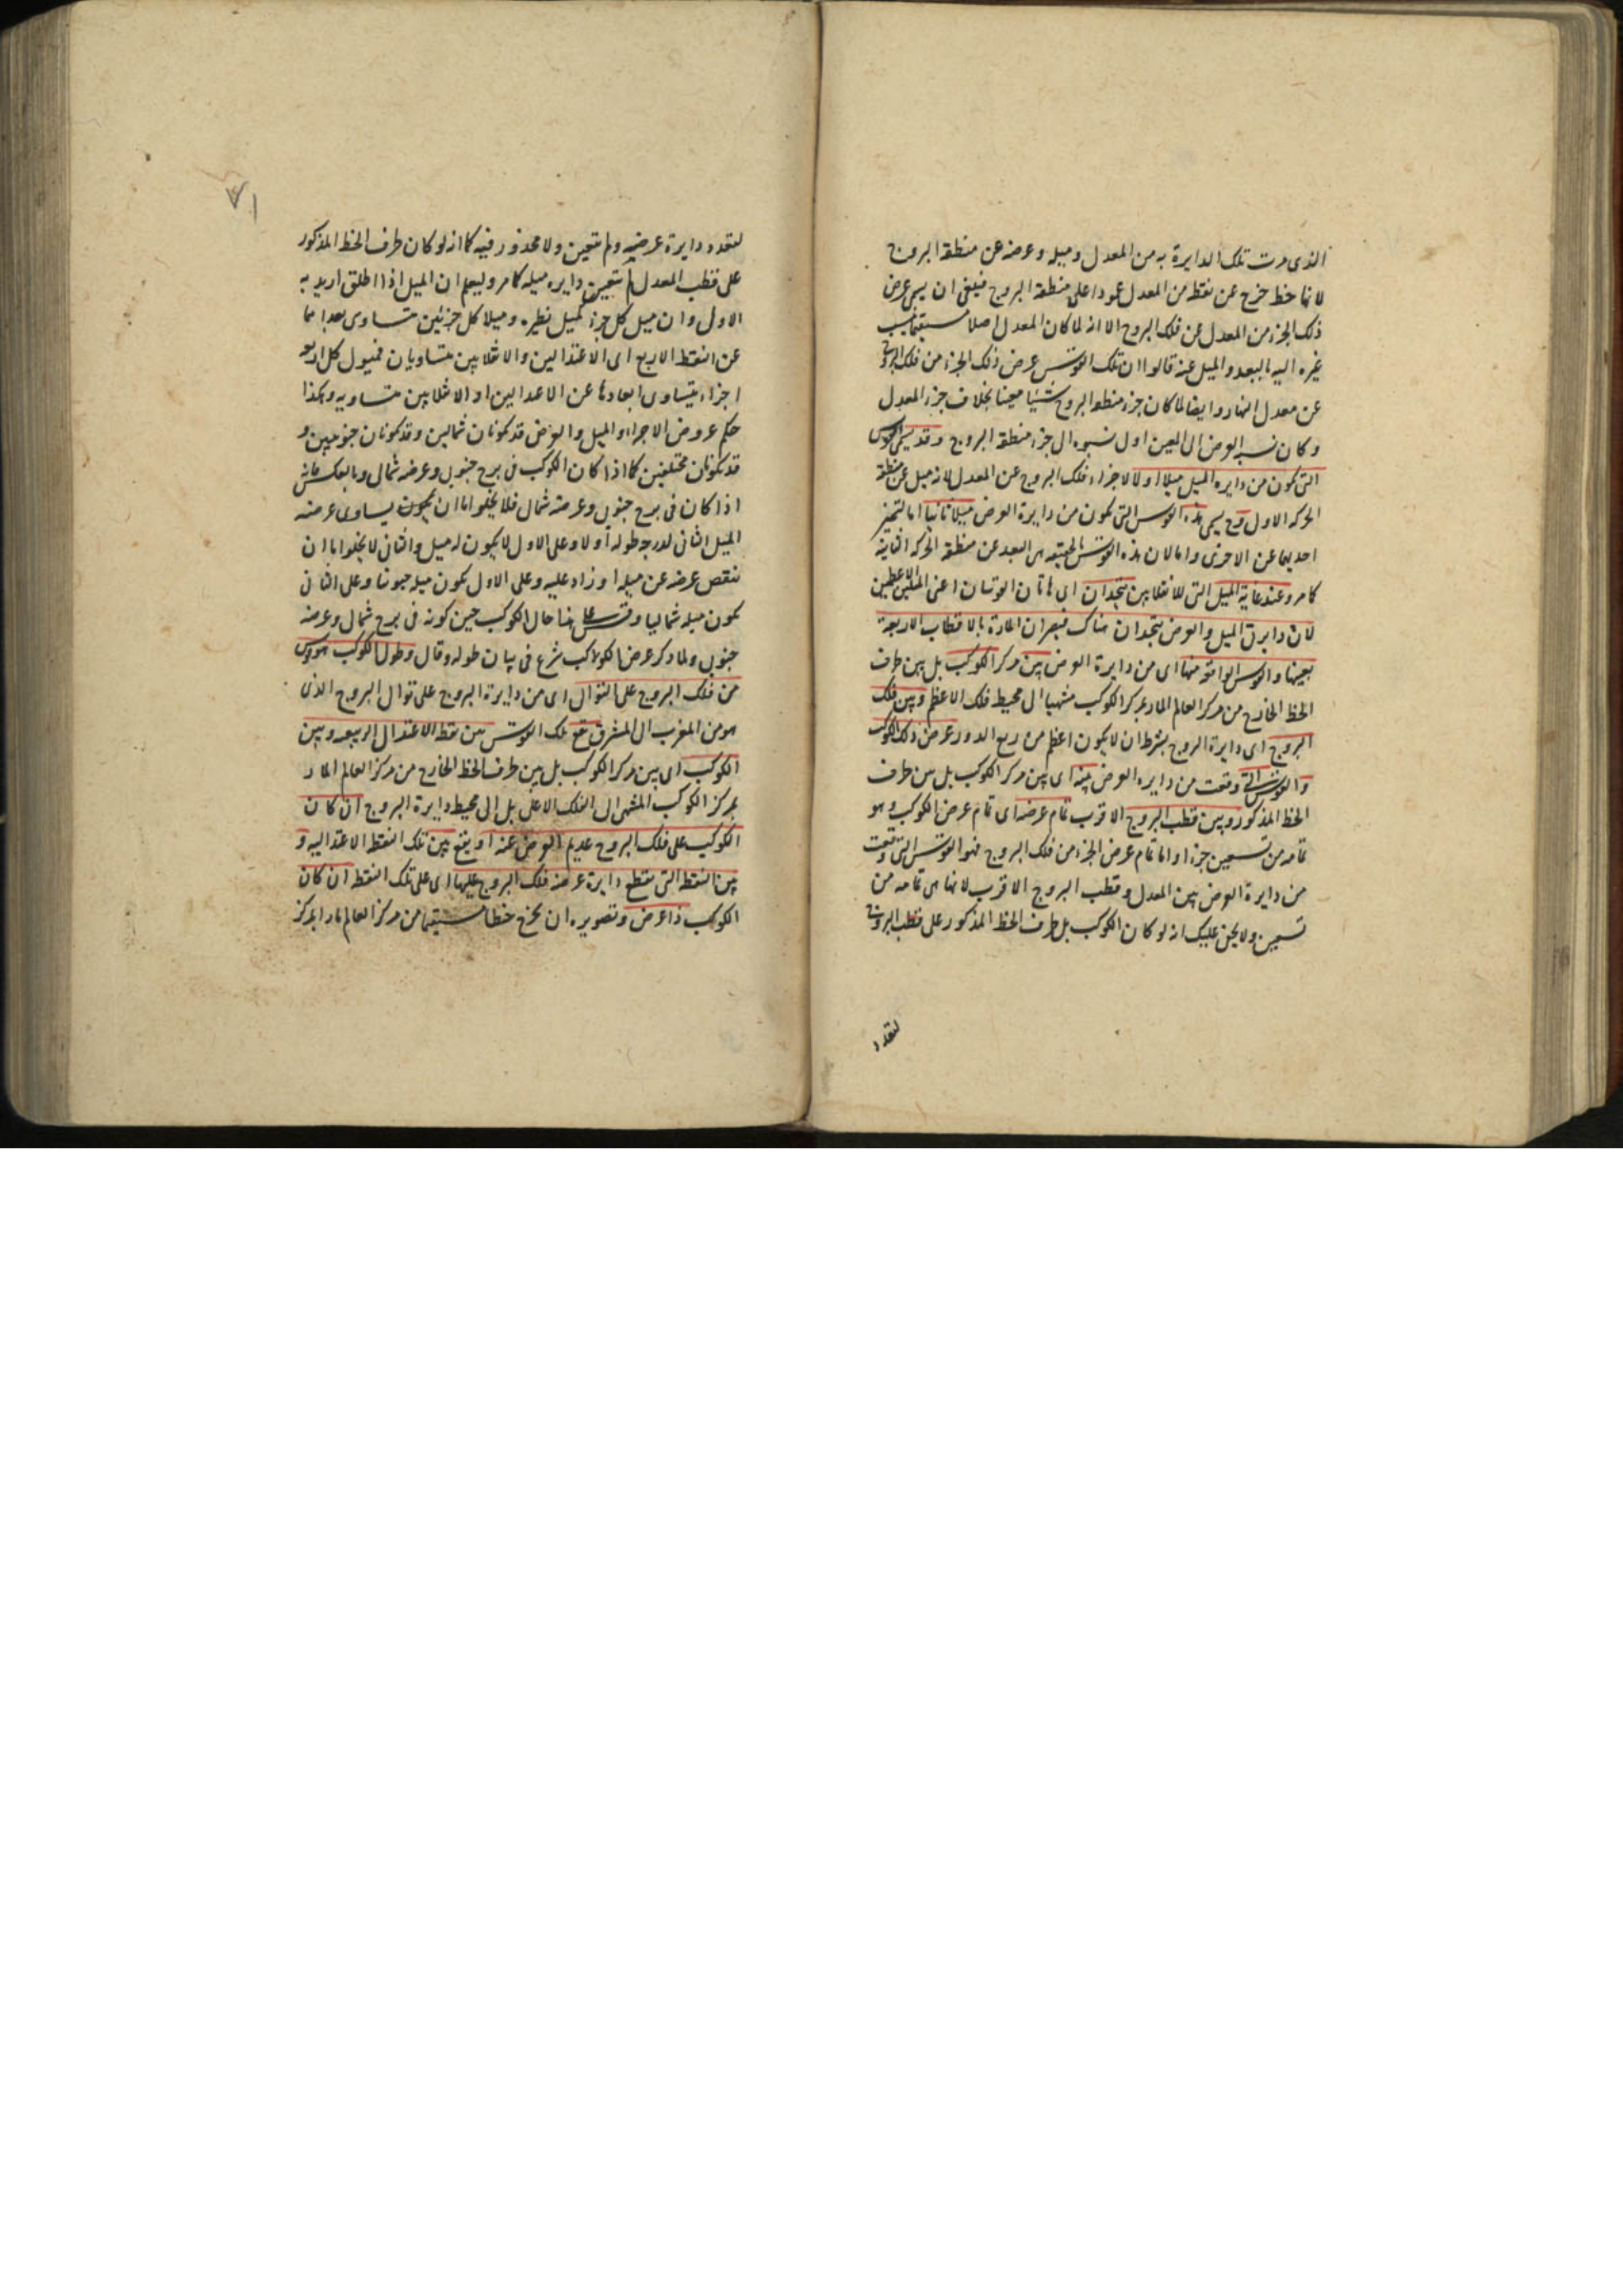 الذى مرت تلك الدايرة به من المعدل وميله وعرضه عن منطقة البروج
لانها خط خرج عن نقطة من المعدل عمودا على منطقة البروج فينبغى ان يسمى عرض
ذلك الجزء من المعدل عن فلك البروج الا انه لما كان المعدل اصلا ينسب
غيره اليه بالبعد والميل عنه قالوا ان تلك القوس عرض ذلك الجزء من فلك البروج
عن معدل النهار وايضا لما كان جزء منطقة البروج شيئا معينا بخلاف جزء المعدل
وكان نسبة العرض الى المعين اولى نسبوه الى جزء منطقة البروج وقد يسمى القوس
التى تكون من دايره الميل ميلا اولا لاجزاء فلك البروج عن المعدل لانه ميل عن منطقة
الحركه الاولى وح يسمى هذه القوس التى تكون من دايرة العرض ميلا ثانيا اما لتميز
احديهما عن الاخرى واما لان هذه القوس بالحقيقه هى البعد عن منطقة الحركه الثانية
كما مر وعند غاية الميل التى للانقلابين يتحدان اى هاتان القوسان اعنى الميلين الاعظمين
لان دايرتى الميل والعرض يتحدان هناك فيصيران المارة بالاقطاب الاربعة
بعينها والقوس الواقعة منها اى من دايرة العرض بين مركز الكوكب بل بين طرف
الخط الخارج من مركز العالم المار بمركز الكوكب منتهيا الى محيط فلك الاعظم وبين فلك
البروج اى دايرة البروج بشرط ان لا يكون اعظم من ربع الدور عرض ذلك الكوكب
والقوس التى وقعت من دايره العرض بينه اى بين مركز الكوكب بل بين طرف
الخط المذكور وبين قطب البروج الاقرب تمام عرضه اى تمام عرض الكوكب وهو
تمامه من تسعين جزءا واما تمام عرض الجزء من فلك البروج فهو القوس التى وقعت
من دايرة العرض بين المعدل وقطب البروج الاقرب لانها هى تمامه من
تسعين ولا يخفى عليك انه لو كان الكوكب بل طرف الخط المذكور على قطب البروج
لتعدد
لتعدد دايرة عرضيه ولم تتعين ولا محذور فيه كما انه لو كان طرف الخط المذكور
على قطب المعدل لم تتعين دايره ميله كما مر وليعلم ان الميل اذا اطلق اريد به
الاول وان ميل كل جزء كميل نظيره وميلا كل جزئين متساوى بعدا هما
عن النقط الاربع اى الاعتدالين والانقلابين متساويان فميول كل اربعة
اجزاء يتساوى ابعادها عن الاعتدالين او الانقلابين متساويه وهكذا
حكم عروض الاجزاء والميل والعرض قد يكونان شمالين وقد يكونان جنوبيين و
قد يكونان مختلفين كما اذا كان الكوكب فى برج جنوبى وعرضه شمالى وبالعكس فانه
اذا كان فى برج جنوبى وعرضه شمالى فلا يخلو اما ان يكون يساوى عرضه
الميل الثانى لدرجه طوله اولا وعلى الاول لا يكون له ميل والثانى لا يخلو اما ان
ينقص عرضه عن ميله او زاد عليه وعلى الاول يكون ميله جنوبيا وعلى الثانى
يكون ميله شماليا وقس على هذا حال الكوكب حين كونه فى برج شمالى وعرضه
جنوبى ولما ذكر عرض الكواكب شرع فى بيان طوله وقال وطول الكوكب هو قوس
من فلك البروج على التوالى اى من دايرة البروج على توالى البروج الذى
هو من المغرب الى المشرق تقع تلك القوس بين نقطة الاعتدال الربيعى وبين
الكوكب اى بين مركز الكوكب بل بين طرف الخط الخارج من مركز العالم المار
بمركز الكوكب المنتهى الى الفلك الاعلى بل الى محيط دايرة البروج ان كان
الكوكب على فلك البروج عديم العرض عنه او يقع بين تلك النقطة الاعتداليه و
بين النقطة التى تقطع دايرة عرضه فلك البروج عليها اى على تلك النقطة ان كان
الكوكب ذا عرض وتصويره ان يخرج خطا مستقيما من مركز العالم مارا بمركز